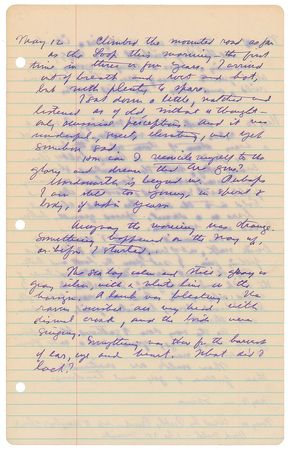 May 12 Climbed the mountain road as far
as the Loop this morning – the first
time in three or four years. I arrived
out of breath and hot,
but with plenty to spare.
I sat down a little, watched and
listened as of old without a thought –
only sensorial perceptions and it was
wonderful, sweet, elevating, and yet
somehow sad.
How can I reconcile myself to the
glory and dream that are gone?
Wordsworth is beyond me. Perhaps
I am still too young, in spirit &
body, if not in years.
Anyway the morning was strange.
Something happened on the way up,
or before I started.
The sea lay calm and still, gray in
gray silver, with a white line in the
horizon. A lamb was bleating. The
raven over my head with
dismal croak, and the birds were
singing.
Everything was there for the
of ear, eye and heart. What did I
lack?